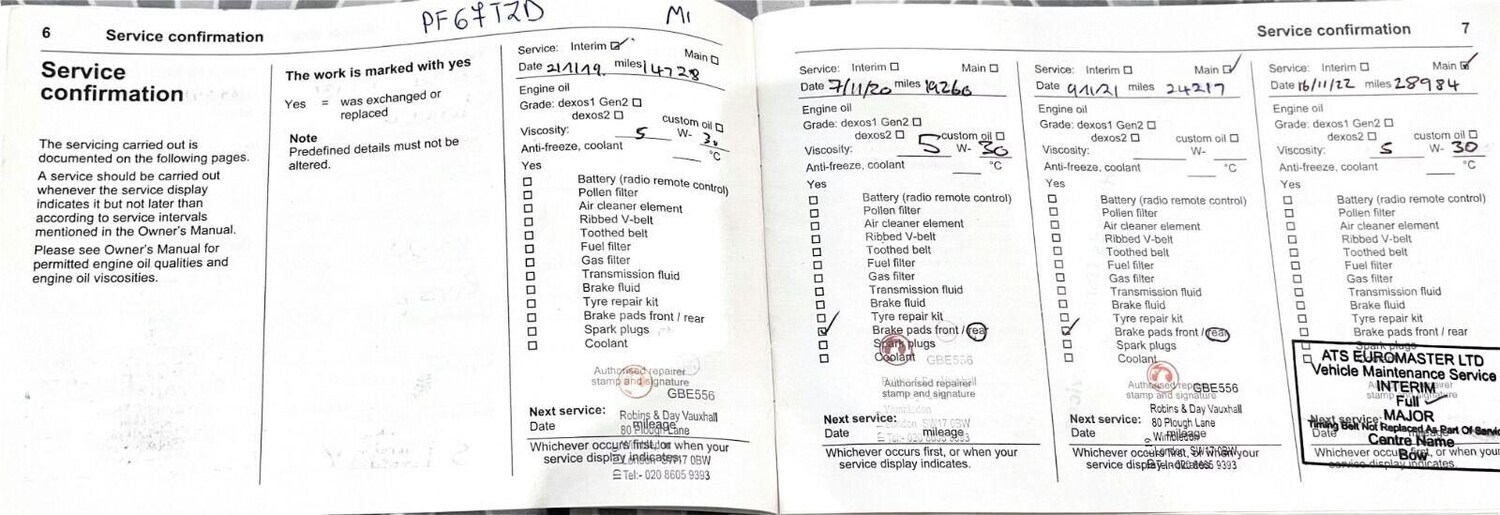 6 Service confirmation
PF67TZD M1
Service confirmation 7
Service
confirmation
The servicing carried out is
documented on the following pages.
A service should be carried out
whenever the service display
indicates it but not later than
according to service intervals
mentioned in the Owner's Manual.
Please see Owner's Manual for
permitted engine oil qualities and
engine oil viscosities.
The work is marked with yes
Yes = was exchanged or
replaced
Note
Predefined details must not be
altered.
Service: Interim ☑ Main ☐
Date 21/1/19. miles 14728
Engine oil
Grade: dexos1 Gen2 ☐
dexos2 ☐ custom oil ☐
Viscosity: 5 W- 30
Anti-freeze, coolant °C
Yes
☐ Battery (radio remote control)
☐ Pollen filter
☐ Air cleaner element
☐ Ribbed V-belt
☐ Toothed belt
☐ Fuel filter
☐ Gas filter
☐ Transmission fluid
☐ Brake fluid
☐ Tyre repair kit
☐ Brake pads front / rear
☐ Spark plugs
☐ Coolant
Authorised repairer
stamp and signature
GBE556
Next service:
Date mileage
Robins & Day Vauxhall
80 Plough Lane
Wimbledon
London SW17 0BW
Tel:- 020 8605 9393
Whichever occurs first, or when your
service display indicates.
Service: Interim ☐ Main ☐
Date 7/11/20 miles 19260
Engine oil
Grade: dexos1 Gen2 ☐
dexos2 ☐ custom oil ☐
Viscosity: 5 W- 30
Anti-freeze, coolant °C
Yes
☐ Battery (radio remote control)
☐ Pollen filter
☐ Air cleaner element
☐ Ribbed V-belt
☐ Toothed belt
☐ Fuel filter
☐ Gas filter
☐ Transmission fluid
☐ Brake fluid
☐ Tyre repair kit
☑ Brake pads front / rear
☐ Spark plugs
☐ Coolant
GBE556
Authorised repairer
stamp and signature
Wimbledon
London SW17 0BW
020 8605 9393
Next service:
Date mileage
Whichever occurs first, or when your
service display indicates.
Service: Interim ☐ Main ☑
Date 9/11/21 miles 24217
Engine oil
Grade: dexos1 Gen2 ☐
dexos2 ☐ custom oil ☐
Viscosity: W-
Anti-freeze, coolant °C
Yes
☐ Battery (radio remote control)
☐ Pollen filter
☐ Air cleaner element
☐ Ribbed V-belt
☐ Toothed belt
☐ Fuel filter
☐ Gas filter
☐ Transmission fluid
☐ Brake fluid
☐ Tyre repair kit
☑ Brake pads front / rear
☐ Spark plugs
☐ Coolant
Authorised repairer
stamp and signature
GBE556
Robins & Day Vauxhall
80 Plough Lane
Wimbledon
London SW17 0BW
Tel:- 020 8605 9393
Next service:
Date mileage
Whichever occurs first, or when your
service display indicates.
Service: Interim ☐ Main ☑
Date 16/11/22 miles 28984
Engine oil
Grade: dexos1 Gen2 ☐
dexos2 ☐ custom oil ☐
Viscosity: 5 W- 30
Anti-freeze, coolant °C
Yes
☐ Battery (radio remote control)
☐ Pollen filter
☐ Air cleaner element
☐ Ribbed V-belt
☐ Toothed belt
☐ Fuel filter
☐ Gas filter
☐ Transmission fluid
☐ Brake fluid
☐ Tyre repair kit
☐ Brake pads front / rear
☐ Spark plugs
ATS EUROMASTER LTD
Vehicle Maintenance Service
INTERIM
Full
MAJOR
Timing Belt Not Replaced As Part Of Servic
Centre Name
Bow
Next service:
Date
Whichever occurs first, or when your
service display indicates.